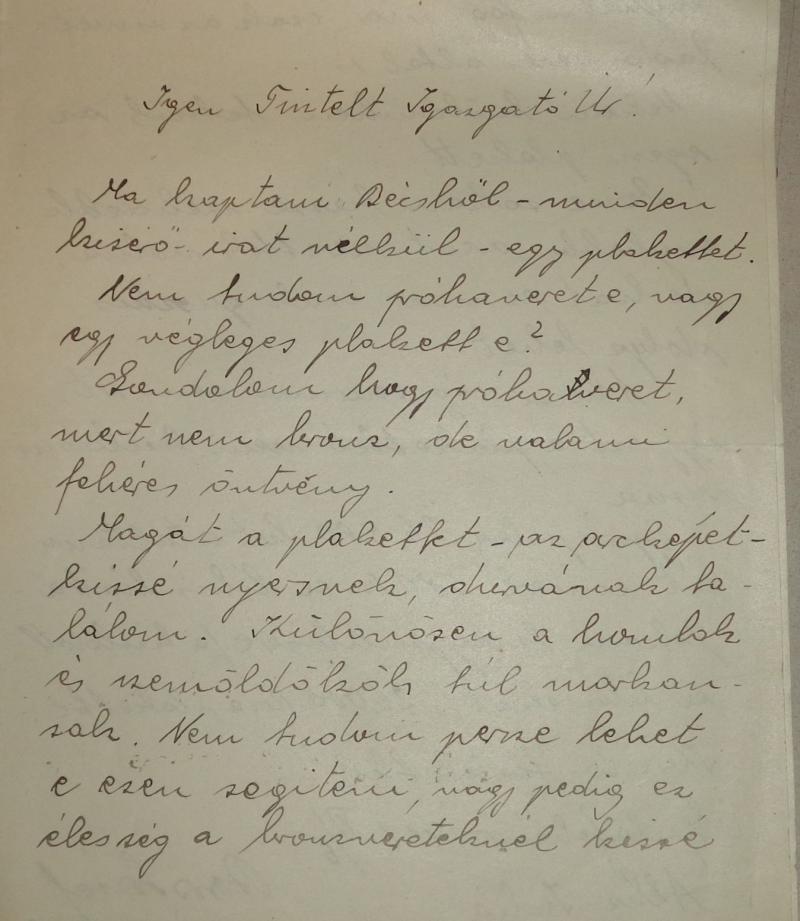 Igen Tisztelt Igazgató Úr!
Ma kaptam Bécsből - minden
kisérő- irat nélkül - egy plakettet.
Nem tudom próbaveret e, vagy
egy végleges plakett e?
Gondolom hogy próbaveret,
mert nem bronz, de valami
fehéres öntvény.
Magát a plakettet - az arcképet -
kissé nyersnek, durvának ta-
lálom. Különösen a homlok
és szemöldökök túl markan-
sak. Nem tudom persze lehet
e ezen segiteni, vagy pedig ez
élesség a bronzvereteknél kissé